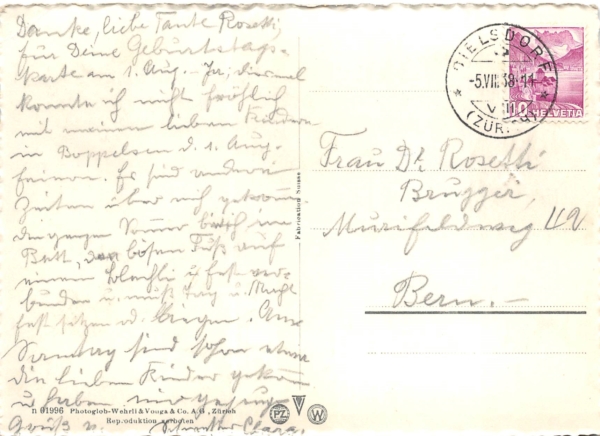 Danke, liebe Tante Rosetti,
für Deine Geburtstags-
karte am 1. Aug. Ja, diesmal
konnte ich nicht fröhlich
mit meinen lieben Kindern
in Boppelsen d. 1. Aug.
feiern. Es sind andere
Zeiten über mich gekommen
den ganzen Sommer bin ich im
Bett, den bösen Fuss auf
einem u fest ver-
bunden u. muss Tag u. Nacht
fest sitzen od. liegen. Am
Sonntag sind schon
die lieben Kinder
u haben mir
Grüsse v. Clara.
DIELSDORF
(ZÜRICH)
HELVETIA
Frau Dr. Rosetti
Brügger,
Murifeldweg
Bern.-
Fabrication Suisse
n 01996 Photoglob-Wehrli & Vouga & Co. A.G., Zürich
Reproduktion verboten
PZ
V
W